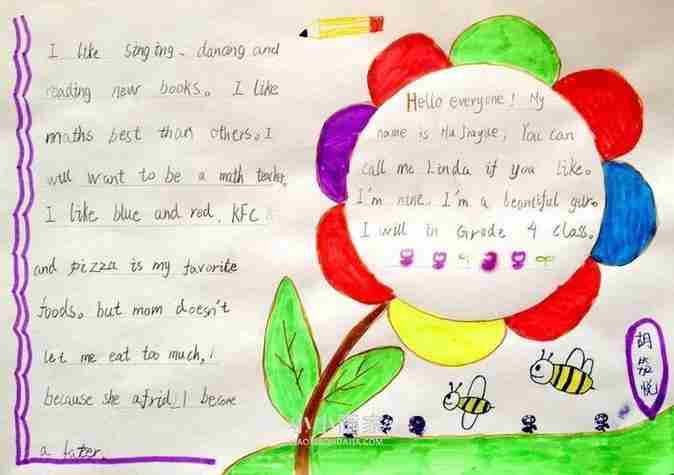 I like singing、dancing and
reading new books。 I like
maths best than others。I
will want to be a math teacher.
I like blue and red. KFC
and pizza is my favorite
foods。but mom doesn't
let me eat too much,
because she afrid I become
a fater.
Hello everyone! My
name is Hu
You can
call me Linda if you like。
I'm nine. I'm a beautiful
I will in Grade 4 Class。
胡
悦